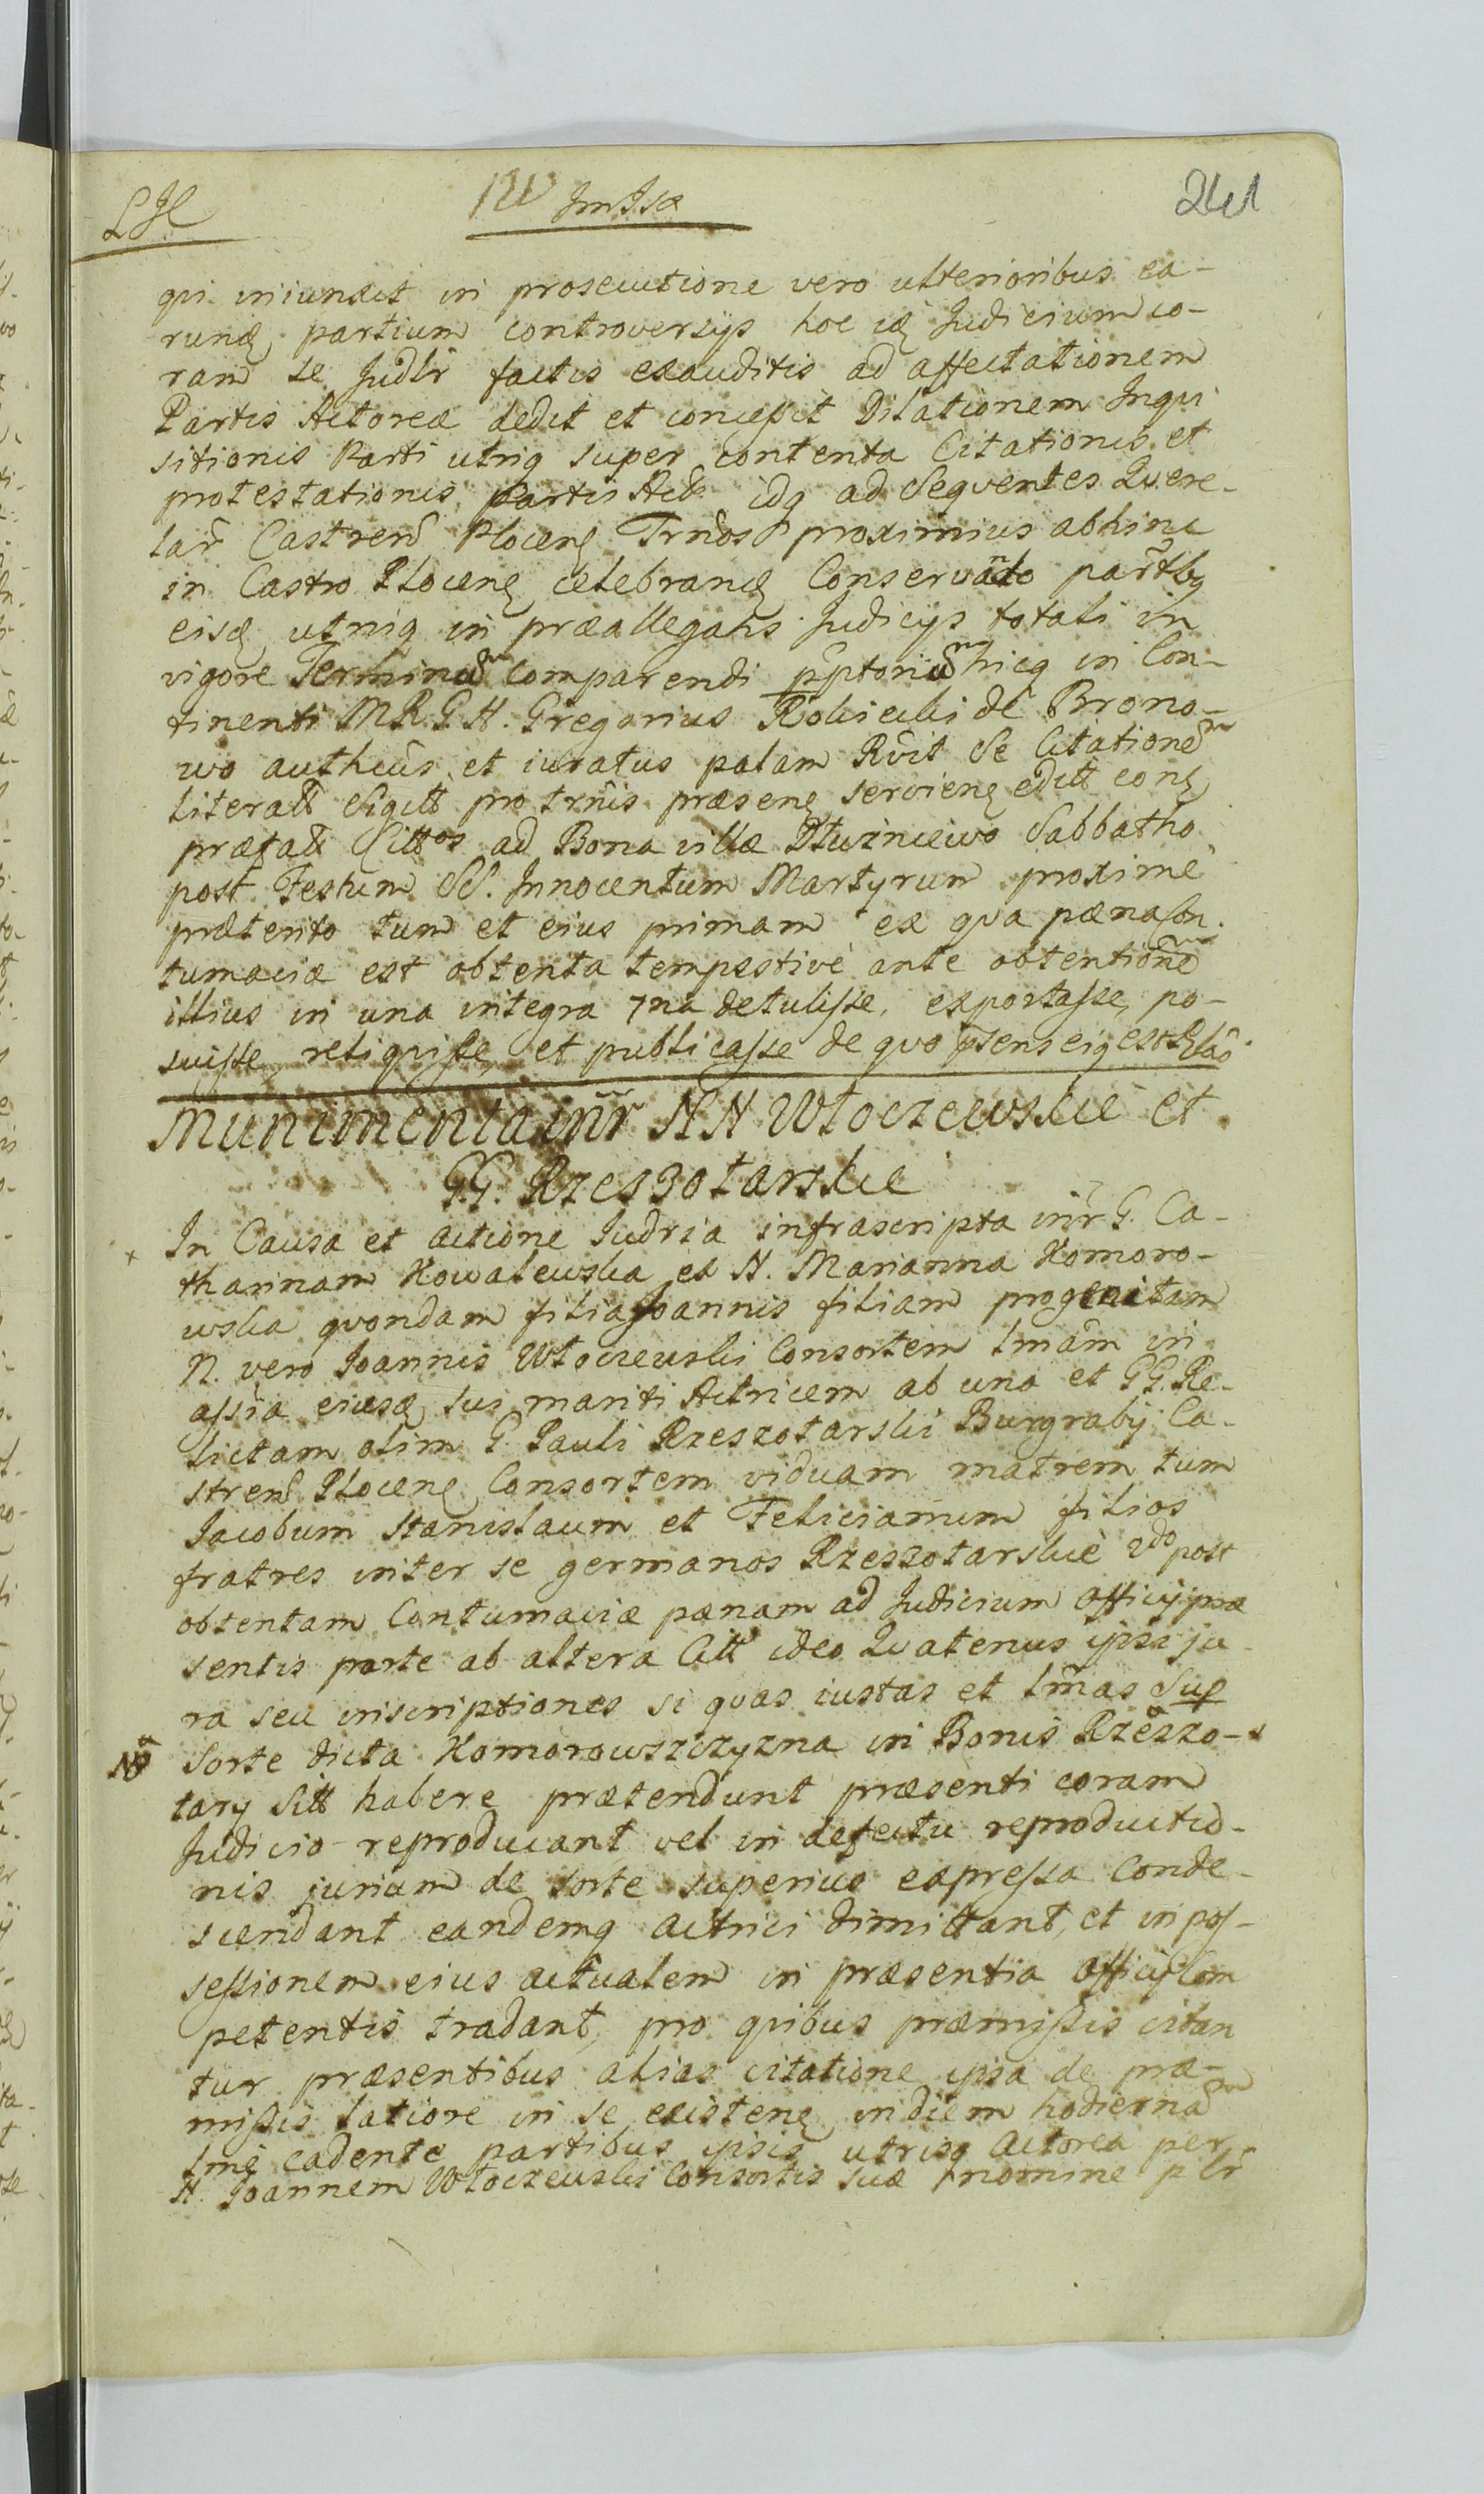 241
qvi iniunxit in prosecutione vero ulterioribus ea-
rund partium controversys hoc id Judicium co-
ram se Judlr factis exauditis ad affectationem
Partis Actoreæ dedit et concessit Dilationem Inqvi
sitionis Parti utriq super contenta Citationis et
protestationis Partis Act idq ad Seqventes Qvere-
lar Castren Plocen Trnos proximius abhinc
in Castro Plocen celebrand Conservando partbq
eisd utriq in præallegatis Judicys totali in
vigore Terminum comparendi pptorium hicq in Con-
tinenti MR. G. N. Gregorius Robicki de Brono-
wo autheus et iuratus palam Rvit Se Citationem
literall Sigill pro trnis præsen servien edill con
præfati Citt os ad Bona villæ Dłużniewo Sabbatho
post Festum SS. Innocentum Martyrum proxime
præterito tum et eius primam ex qva pæna Con-
tumaciæ est obtenta tempestive ante obtentionem
illius in una integra 7na detulisse, exportasse, po-
suisse, reliqvisse, et publicasse de qvo psens eiq est Rlao
Munimenta intr NN Włoczewskie et
GG. Rzeszotarskie
In Causa et actione Judria infrascripta intr G. Ca-
tharinam Kowalewska ex N. Marianna Komoro-
wska qvondam filia Joannis filiam progenitam
N. vero Joannis Włoczewski Consortem lmam in
assia eiusd sui mariti Actricem ab una et GG. Re-
lictam olim G. Pauli Rzeszotarski Burgraby Ca-
stren Plocen Consortem viduam matrem tum
Jacobum Stanislaum et Felicianum filios
fratres inter se germanos Rzeszotarskie 2do post
obtentam Contumaciæ pænam ad Judicium Officy præ
sentis parte ab altera Citt ideo Qvatenus ipsi ju-
ra seu inscriptiones si qvas iustas et lmas Sup
Sorte dicta Komorowszczyzna in Bonis Rzeszo-
tary Sitt habere prætendunt præsenti coram
Judicio reproducant vel in defectu reproductio-
nis jurium de sorte superius expressa Conde-
scendant eandemq actrici dimittant, et in pos-
sessionem eius actualem in præsentia Officy Com
petentis tradant, pro qvibus præmissis citan
tur præsentibus alias citatione ipsa de præ-
missis latiore in se existen in diem hodiernam
lme cadente partibus ipsis utrisq Actorea per
N. Joannem Włoczewski Consortis suæ nomine plr